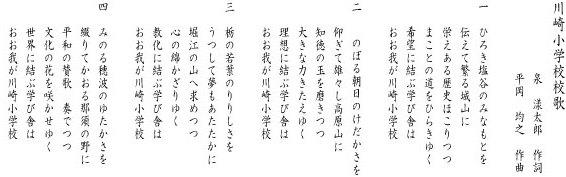 川崎小学校校歌
泉 漾太郎 作詞
平岡 均之 作曲
一 ひろき塩谷のみなもとを
伝えて繁る城山に
栄えある歴史ほこりつつ
まことの道をひらきゆく
希望に結ぶ学び舎は
おお我が川崎小学校
二 のぼる朝日のけだかさを
仰ぎて雄々し高原山に
知徳の玉を磨きつつ
大きな力きたえゆく
理想に結ぶ学び舎は
おお我が川崎小学校
三 栃の若葉のりりしさを
うつして夢もあたたかに
堀江の山へ求めつつ
心の錦かざりゆく
教化に結ぶ学び舎は
おお我が川崎小学校
四 みのる穂波のゆたかさを
綴りてかおる那須の野に
平和の賛歌 奏でつつ
文化の花を咲かせゆく
世界に結ぶ学び舎は
おお我が川崎小学校